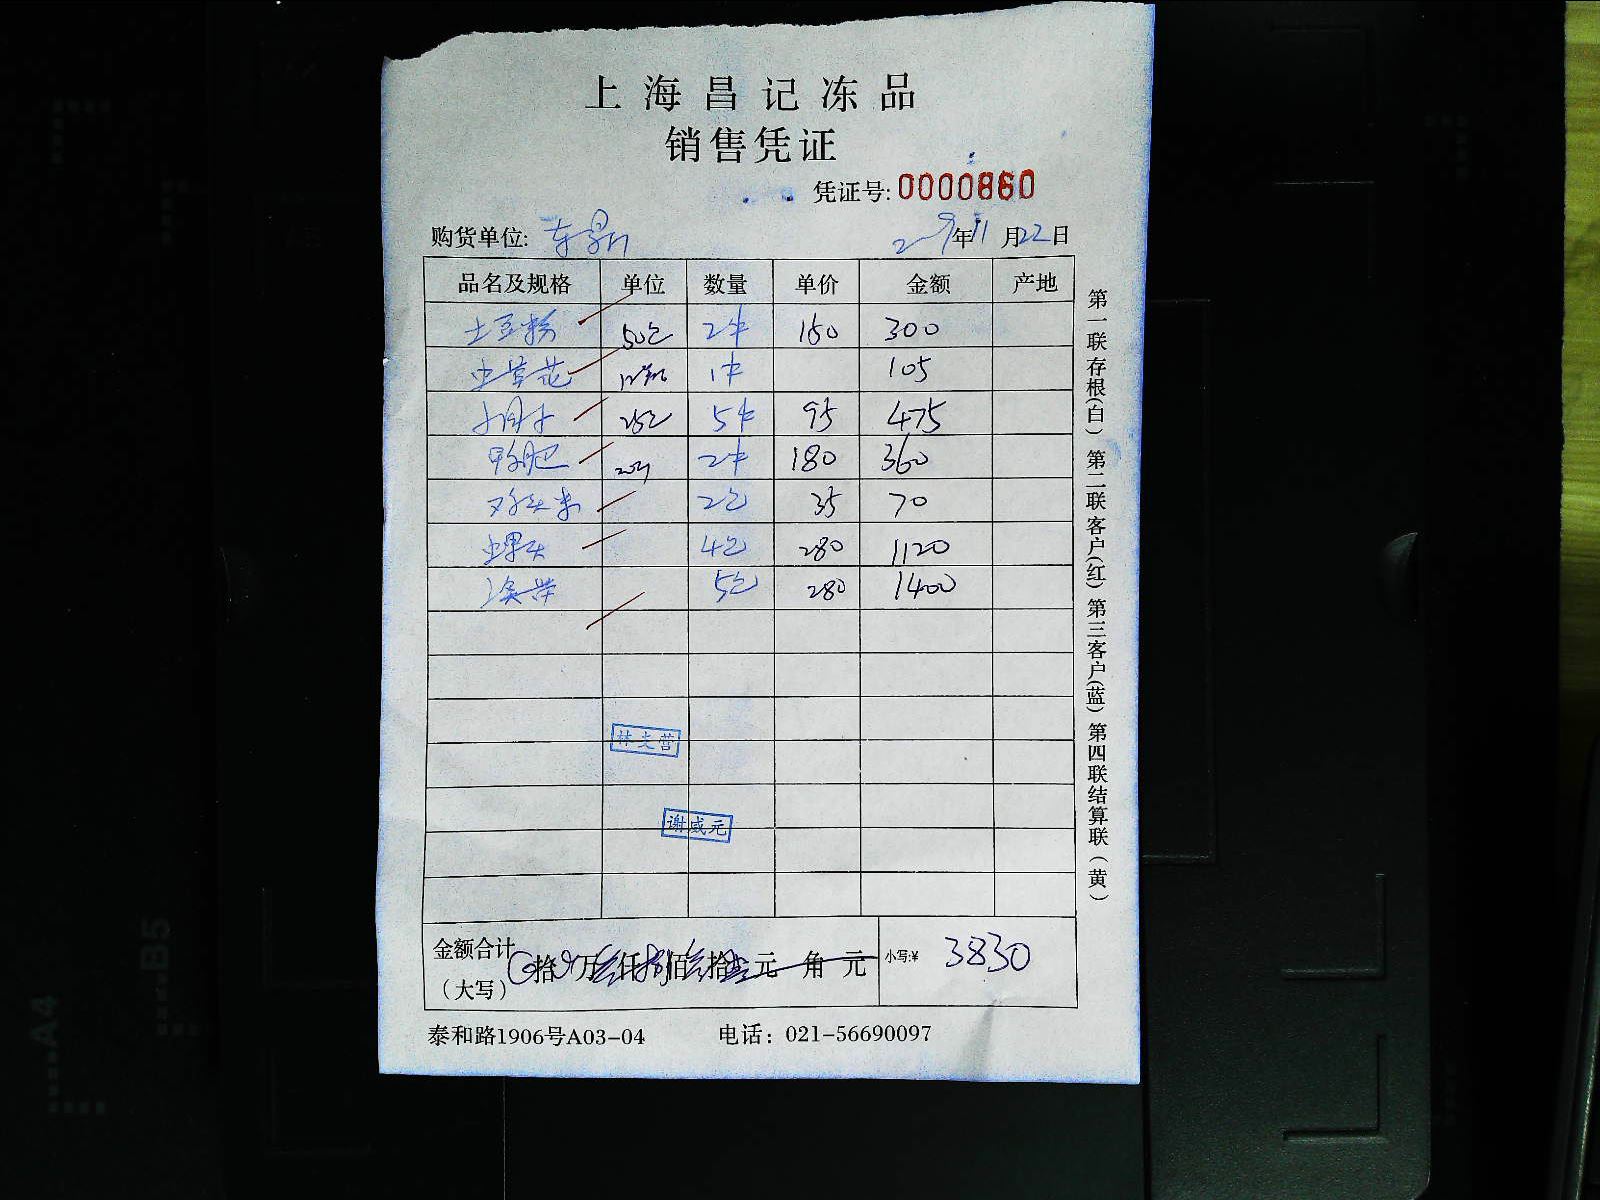 上海昌记冻品
销售凭证
凭证号: 0000860
购货单位: 年 11 月 22 日
品名及规格 单位 数量 单价 金额 产地
土豆粉 50包 2件 150 300
虫草花 12瓶 1件 105
25包 5件 95 475
鸭肥 2件 180 360
鸡头米 2包 35 70
螺头 4包 280 1120
5包 280 1400
林夫营
谢成元
金额合计(大写) 0拾0万叁仟捌佰叁拾元 角 元 小写:¥ 3830
泰和路1906号A03-04 电话: 021-56690097
第一联存根(白) 第二联客户(红) 第三客户(蓝) 第四联结算联(黄)